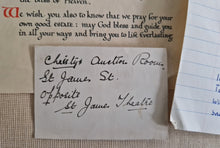 the bliss of Heaven.
We wish you also to know that we pray for your
own good estate : may God bless and guide you
in all your ways and bring you to Life Everlasting
Christys Auction Rooms
St James St.
opposite
St James Theatre